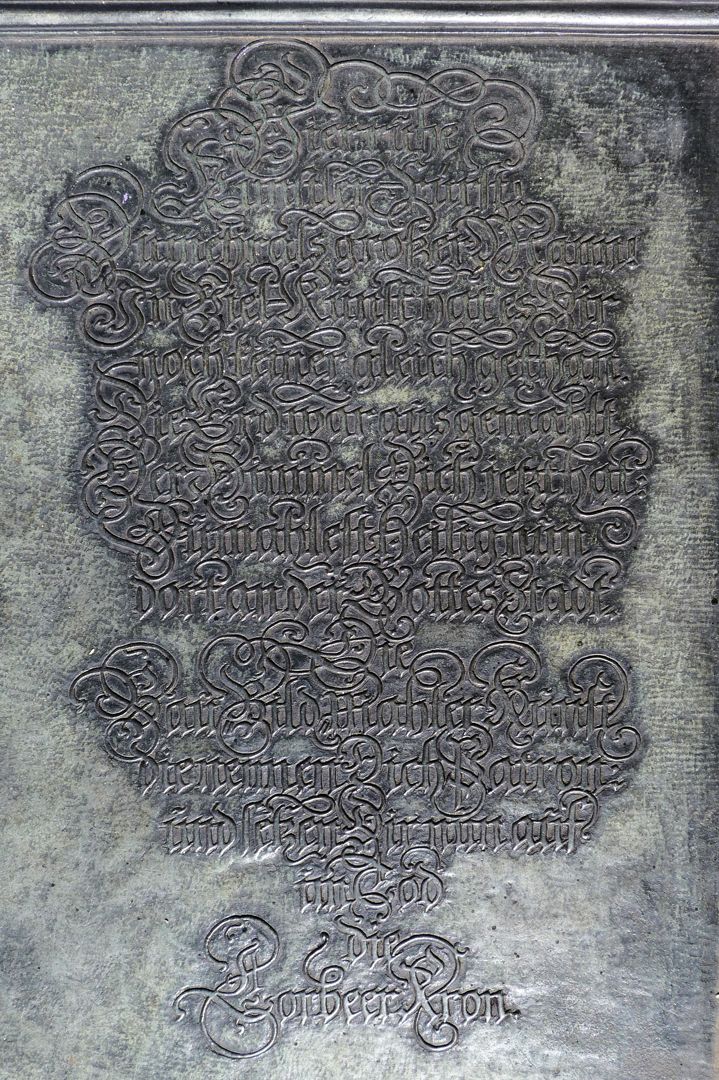 Hier ruhe
Künstler Fürst,
Du mehr als großer Mann
In Viel-Kunst hat es Dir
noch keiner gleich gethan.
Die Erd war ausgemahlt
Der Himmel Dich jetzt hat:
Du mahlest heilig nun
dort an der Gottes Stadt.
Die
Bau Bild Mahler Kunst
die nennen Dich Patron:
und setzen Dir nun auf
im Tod
die
Lorbeer Kron.